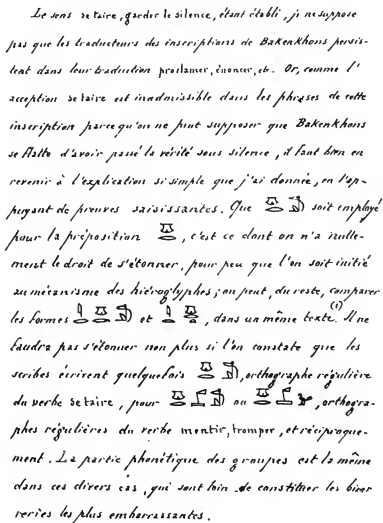 Le sens se taire, garder le silence, étant établi, je ne suppose
pas que les traducteurs des inscriptions de Bakenkhons persis-
tent dans leur traduction proclamer, énoncer, etc. Or, comme l'
acception se taire est inadmissible dans les phrases de cette
inscription parce qu'on ne peut supposer que Bakenkhons
se flatte d'avoir passé la vérité sous silence, il faut bien en
revenir à l'explication si simple que j'ai donnée, en l'ap-
puyant de preuves saisissantes. Que soit employé
pour la préposition , c'est ce dont on n'a nulle-
ment le droit de s'étonner, pour peu que l'on soit initié
au mécanisme des hiéroglyphes; on peut, du reste, comparer
les formes et , dans un même texte (1). Il ne
faudra pas s'étonner non plus si l'on constate que les
scribes écrivent quelquefois , orthographe régulière
du verbe se taire, pour ou , orthogra-
phes régulières du verbe mentir, tromper, et réciproque-
ment. La partie phonétique des groupes est la même
dans ces divers cas, qui sont loin de constituer les bizar
reries les plus embarrassantes.